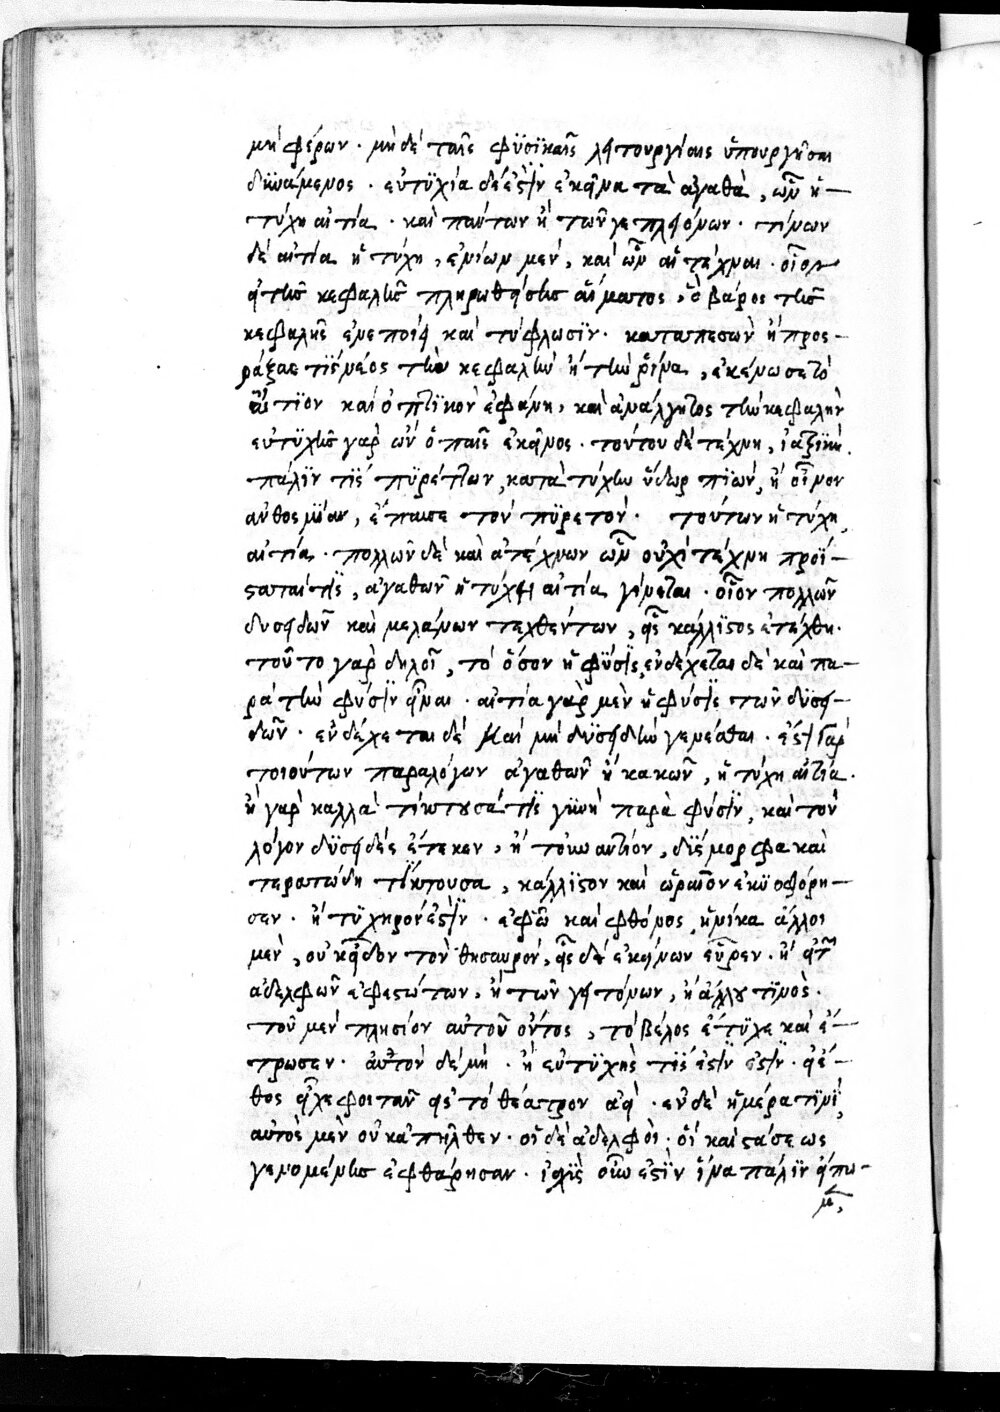 μὴ φέρων · μὴ δὲ ταῖς φϋσϊκαῖς λειτουργίαις ὑπουργῆσαι
δϋνάμενος · εὐτϋχία δέ ἐστὶν ἐκεῖνα τὰ ἀγαθὰ, ὧν ἡ
τύχη αἰτία · καὶ πάντων ἢ τῶν γε πλειόνων · τίνων
δὲ αἰτία ἡ τύχη, ἐνίων μὲν, καὶ ὧν αἱ τέχναι · οἷον
εἰ τῆς κεφαλῆς πληρωθείσης αἵματος, ὃ βάρος τῆς
κεφαλῆς ἐνεποίει καὶ τύφλωσϊν · καταπεσὼν ἢ προσ-
ράξας τϊς νέος τὴν κεφαλὴν ἢ τὴν ῥῖνα, ἐκένωσε τὸ
αἴτϊον καὶ ὀπτϊκὸν ἐφάνη, καὶ ἀνάλγητος τὴν κεφαλὴν
εὐτϋχὴς γὰρ ὢν ὁ παῖς ἐκεῖνος · τούτου δὲ τέχνη, ἰατρϊκὴ
πάλϊν τϊς πϋρέττων, κατὰ τύχην ὕδωρ πϊὼν, ἢ οἶνον
ἀνθοσμίαν, ἔπαυσε τὸν πϋρετόν · τούτων ἡ τύχη
αἰτία · πολλῶν δὲ καὶ ἀτέχνων ὧν οὐχὶ τέχνη προΐ-
σταταί τϊς, ἀγαθῶν ἡ τύχη αἰτία γίνεται · οἷον πολλῶν
δυσειδῶν καὶ μελάνων τεχθέντων, εἷς κάλλϊστος ἐτέχθη ·
τοῦτο γὰρ δηλοῖ, τὸ ὅσον ἡ φύσϊς, ἐνδέχεται δὲ καὶ πα-
ρὰ τὴν φύσϊν εἶναι · αἰτία γὰρ μὲν ἡ φύσϊς τῶν δϋσει-
δῶν · ἐνδέχεται δὲ καὶ μὴ δϋσειδῆ γενέσθαι · ἔστι γὰρ
τοιούτων παραλόγων ἀγαθῶν ἢ κακῶν, ἡ τύχη αἰτία ·
ἢ γὰρ καλλὰ τίκτουσά τϊς γϋνὴ παρὰ φύσϊν, καὶ τὸν
λόγον δϋσειδὲς ἔτεκεν, ἢ τοὐναντίον, δϋσμορφα καὶ
τερατώδη τίκτουσα, κάλλϊστον καὶ ὡραῖον ἐκϋοφόρη-
σεν · ἢ τϋχηρόν ἐστϊν · ἐφ ᾧ καὶ φθόνος, ἡνίκα ἄλλοι
μὲν, οὐκ εἶδον τὸν θησαυρόν, εἷς δὲ ἐκείνων εὗρεν · ἢ εἰ τῶν
ἀδελφῶν ἐφεστώτων, ἢ τῶν γειτόνων, ἢ ἄλλου τϊνὸς ·
τοῦ μὲν πλησίον αὐτοῦ ὄντος, τὸ βέλος ἔτϋχε καὶ ἔ-
τρωσεν · αὐτὸν δὲ μὴ · ἢ εὐτϋχὴς τίς ἐστϊν ἐστϊν · εἰ ἔ-
θος εἶχε φοιτᾶν εἰς τὸ θέατρον ἀεὶ · ἐν δὲ ἡμέρα τϊνὶ,
αὐτὸς μὲν οὐκ ἀπῆλθεν · οἱ δὲ ἀδελφοὶ · οἳ καὶ στάσεως
γενομένης ἐφθάρησαν · ἰδίως οὖν ἐστὶν ἵνα πάλϊν εἴπω-
μεν,